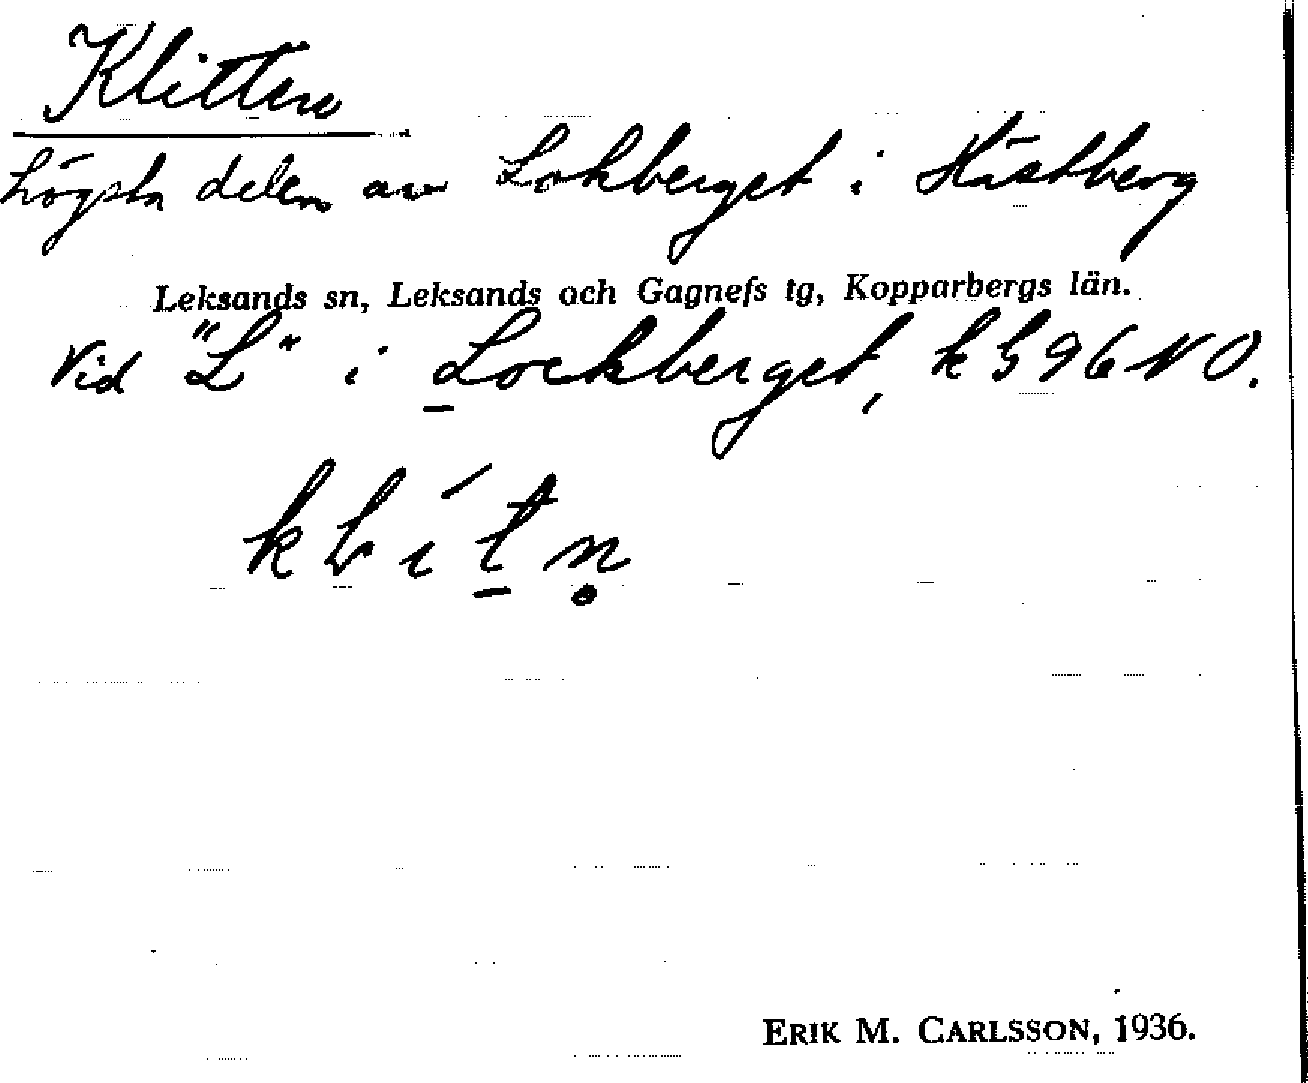 Klitten
högsta delen av Lokberget i Hästberg
Leksands sn, Leksands och Gagnefs tg, Kopparbergs län.
Vid "L" i Lockberget, kb 96 NO.
ERIK M. CARLSSON, 1936.